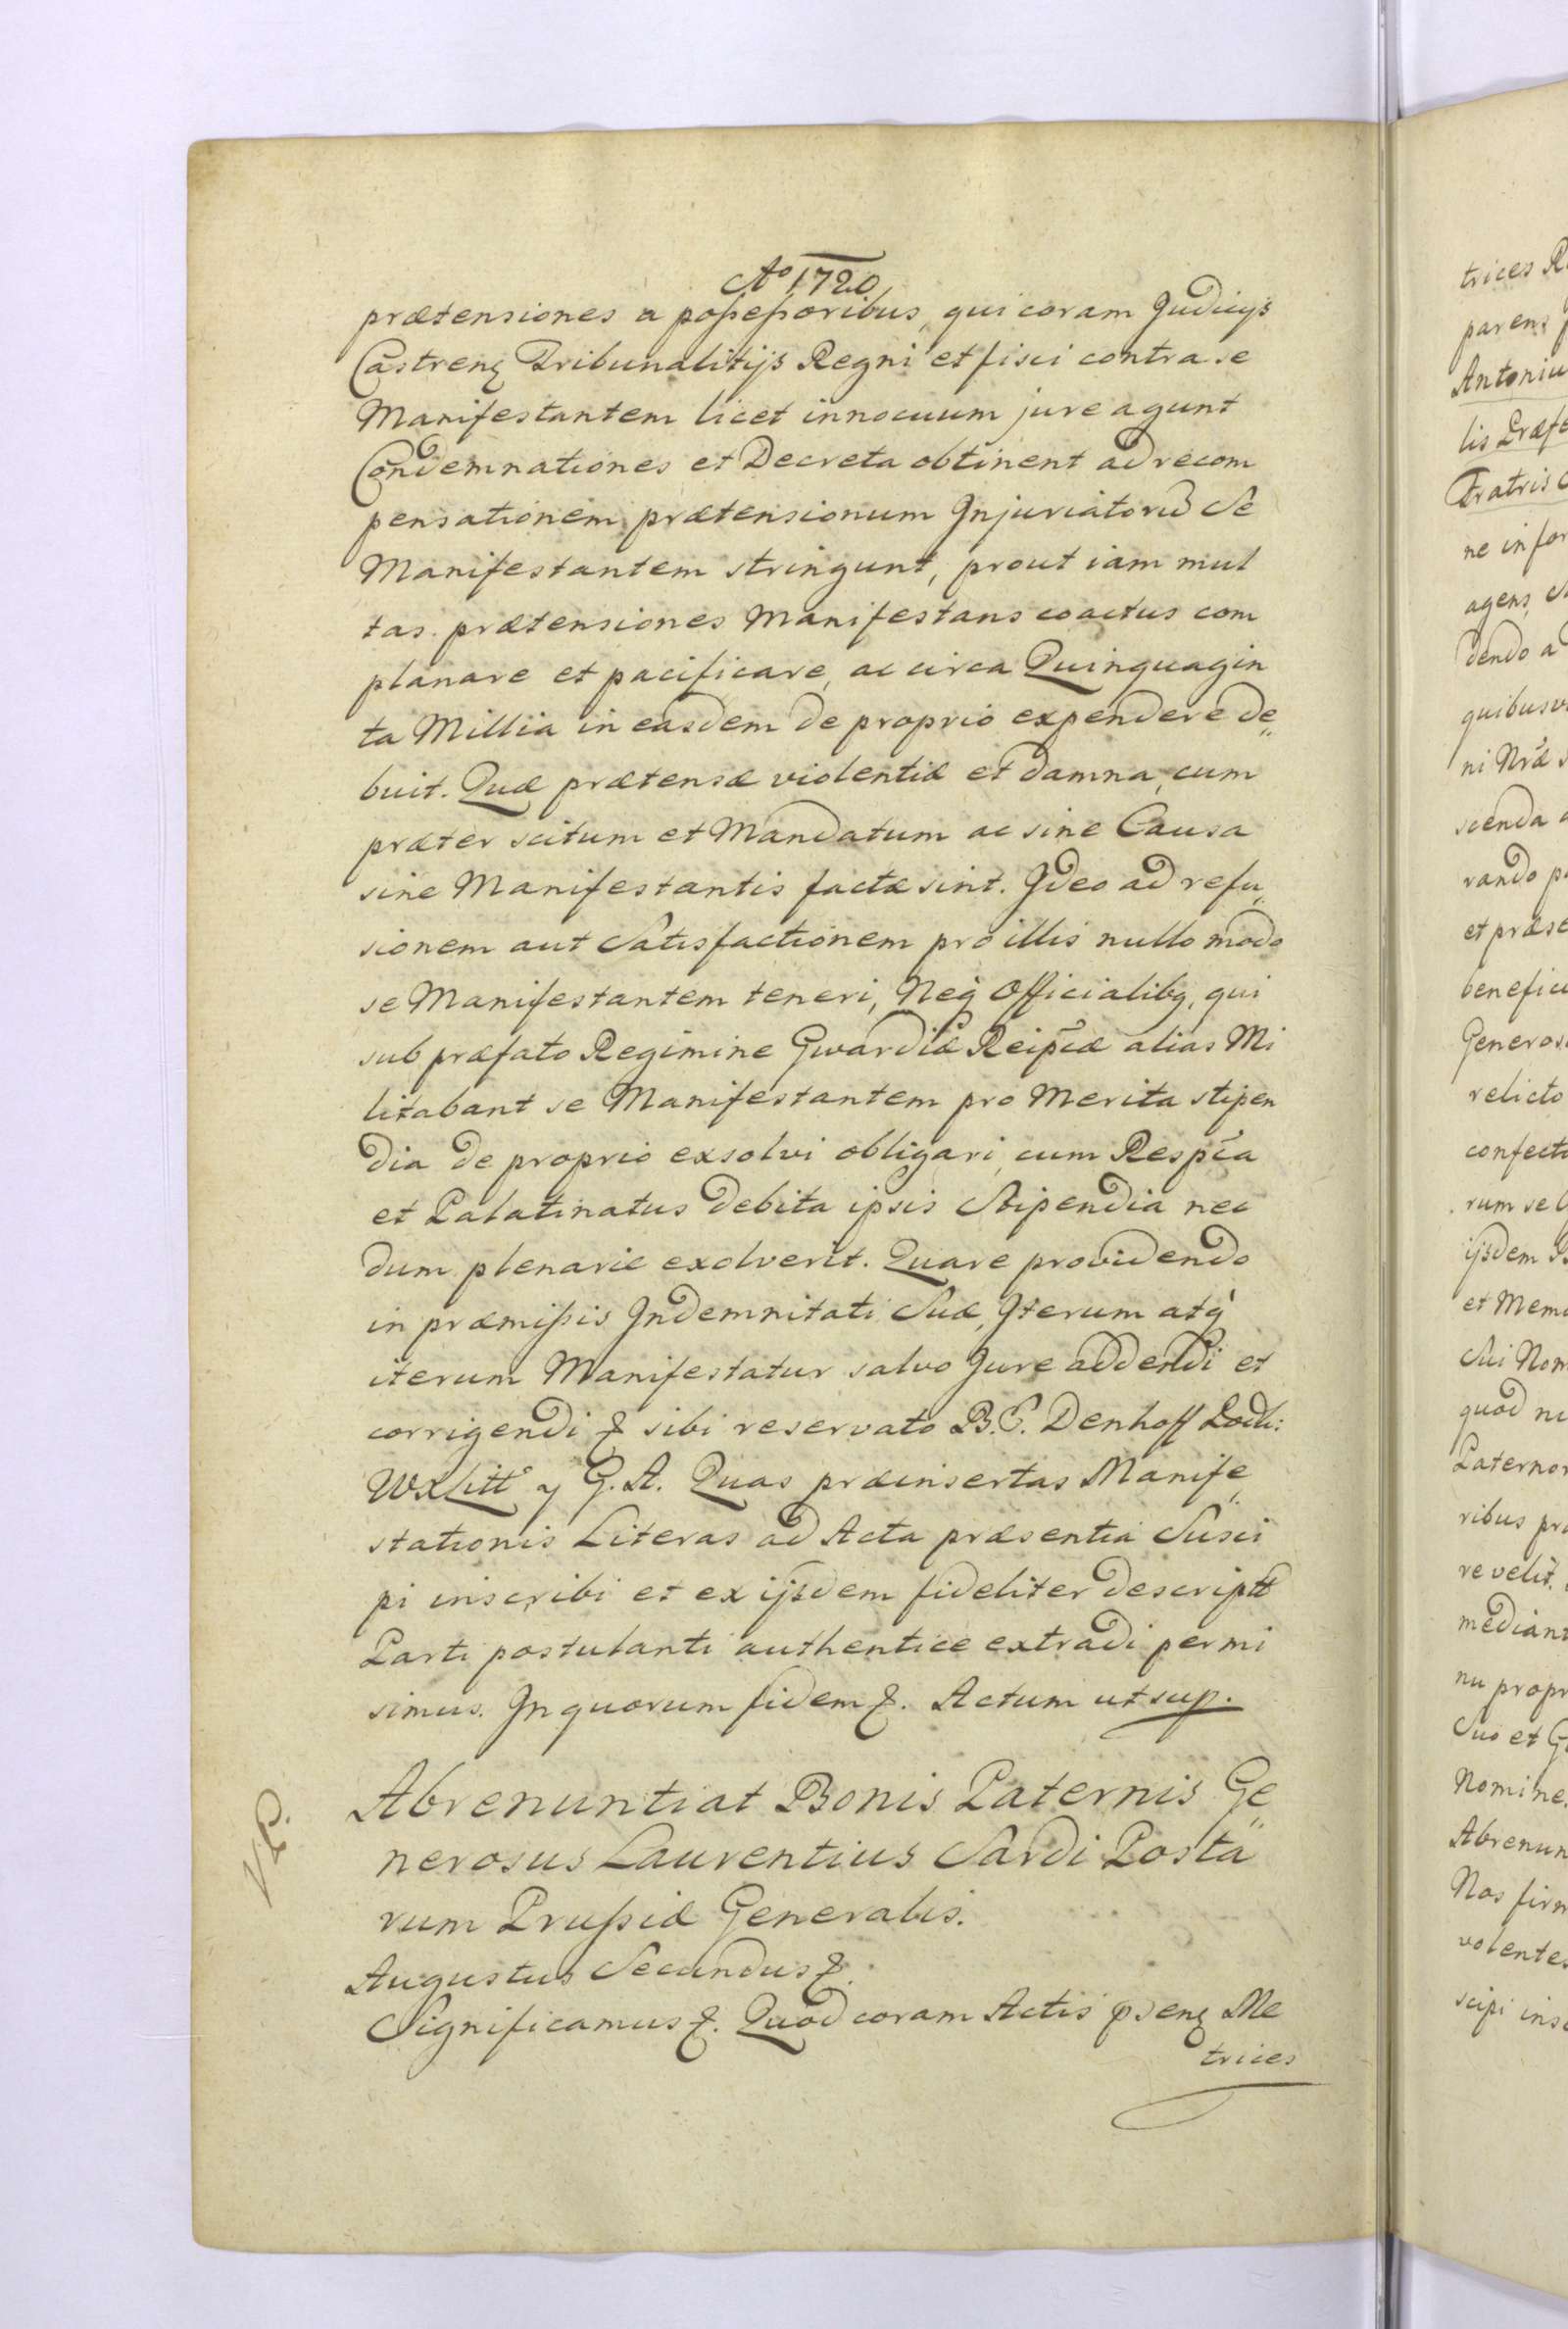 Aº 1720
prætensiones a poßeßoribus, qui coram Judicijs
Castrenȝ Tribunalitijs Regni et fisci contra se
Manifestantem licet innocuum jure agunt
Condemnationes et Decreta obtinent ad recom
pensationem prætensionum Injuriatorū Se
Manifestantem stringunt, prout iam mul
tas prætensiones Manifestans coactus com
planare et pacificare, ac circa Quinquagin
ta Millia in easdem de proprio expendere de„
buit. Quæ prætensæ violentiæ et damna, cum
præter scitum et Mandatum ac sine Causa
sine Manifestantis factæ sint. Ideo ad refu„
sionem aut Satisfactionem pro illis nullo modo
se Manifestantem teneri, Neq̀ Officialibq, qui
sub præfato Regimine Gwardiæ Reip̃cæ alias Mi
litabant se Manifestantem pro Merita stipen
dia de proprio exsolvi obligari, cum Resp̃ca
et Palatinatus debita ipsis Stipendia nec
dum plenarie exolverit. Quare providendo
in præmißis Indemnitati Suæ, Iterum atq̀
iterum Manifestatur salvo Jure addendi et
corrigendi ꝛ sibi reservato B. P. Denhoff
G. A. Quas præinsertas Manife„
stationis Literas ad Acta præsentia Susci
pi inscribi et ex ijsdem fideliter descriptū
Parti postulanti authentice extradi permi
simus. In quorum fidem ꝛ. Actum ut sup.
Abrenuntiat Bonis Paternis Ge„
nerosus Laurentius Sardi Posta
rum Prußiæ Generalis.
Augustus Secundus ꝛ.
Significamus ꝛ. Quod coram Actis p̃senȝ Me
trices
trices
parens
Antoniu
lis Præfe
Fratris
ne infor
agens
dendo a
quibusv
ni Nr̃æ
scienda
rando
et præse
benefici
Generos
relicto
confecti
rum se
ijsdem
et Mem
Sui Nom
quod
Paternor
ribus pr
re velit.
mediant
nu propr
Suo et G
Nomine
Abrenun
Nos firm
volentes
scipi ins